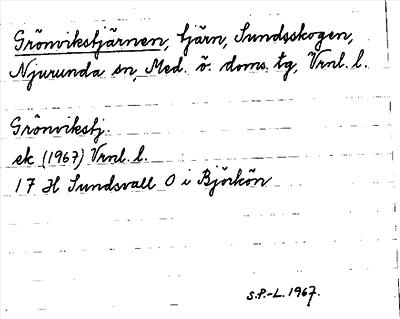 Grönvikstjärnen, tjärn, Sundsskogen,
Njurunda sn, Med. ö. doms. tg, Vrnl. l.
Grönvikstj.
ek (1967) Vrnl. l.
17 H Sundsvall O i Björkön
S.P.-L. 1967.